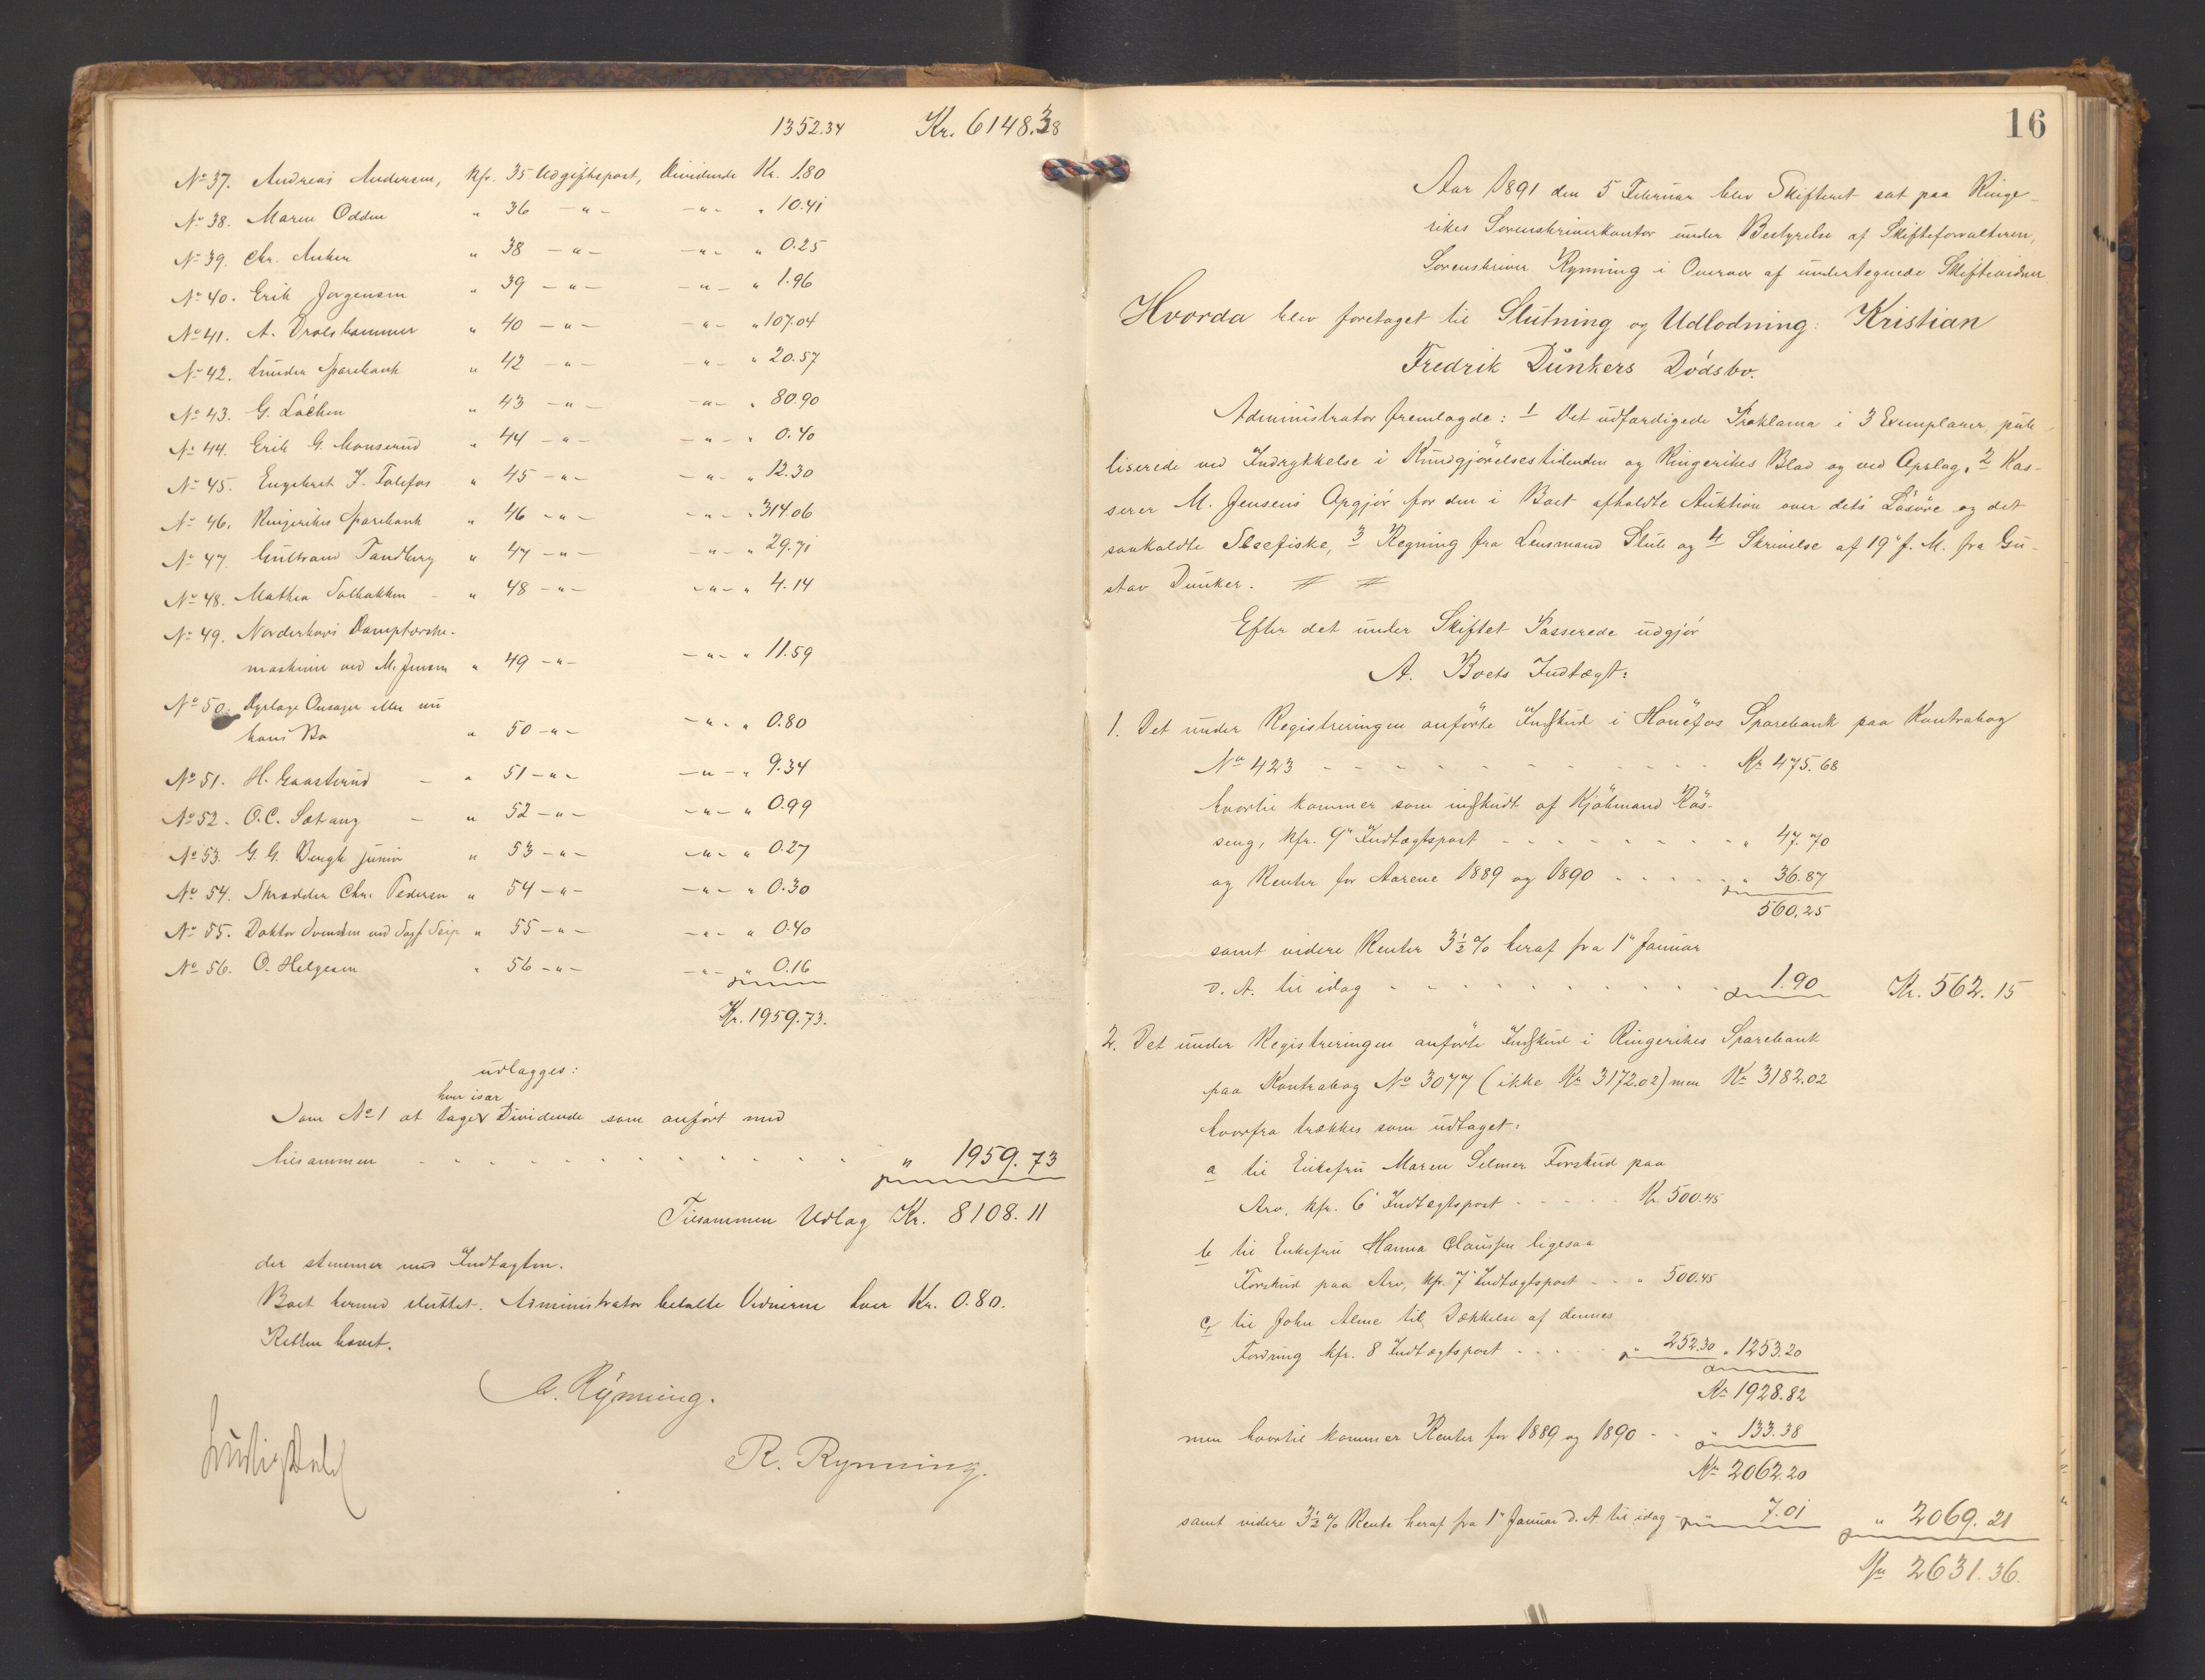 1352.34 Kr. 6148.38
No 37. Andreas Andersen, kfr. 35 Udgiftspost, Dividende Kr. 1.80
No 38. Maren Odden " 36 -"- -"- " 10.41
No 39. Chr. Anken " 38 -"- -"- " 0.25
No 40. Erik Jorgensen " 39 -"- -"- " 1.96
No 41. A. Drolshammer " 40 -"- -"- " 107.04
No 42. Lunder Sparebank " 42 -"- -"- " 20.57
No 43. G. Lóchen " 43 -"- -"- " 80.90
No 44. Erik G. Monserud " 44 -"- -"- " 0.40
No 45. Engebret J. Tolefos " 45 -"- -"- " 12.30
No 46. Ringerikes Sparebank " 46 -"- -"- " 314.06
No 47. Gulbrand Tandberg " 47 -"- -"- " 29.71
No 48. Mathea Solbakken - " 48 -"- -"- " 4.14
No 49. Norderhovs Damptærske-
maskine ved M. Jensen " 49 -"- -"- " 11.59
No 50. Onsager eller nu
hans Bo " 50 -"- -"- " 0.80
No 51. H. Gaasterud - " 51 -"- -"- " 9.34
No 52. O. C. Sætang - " 52 -"- -"- " 0.99
No 53. G. G. Bergh junior " 53 -"- -"- " 0.27
No 54. Skrædder Chr. Pedersen " 54 -"- -"- " 0.30
No 55. Doktor Svendsen ved Sagf. " 55 -"- -"- " 0.40
No 56. O. Helgesen " 56 -"- -"- " 0.16
Kr. 1959.73.
udlægges:
hver især
Som No 1 at tage Dividende som anført med
tilsammen " 1959.73
Tilsammen Udlag Kr. 8108.11
der stemmer med Indtægten.
Boet hermed sluttet. Administrator betalte Vidnerne hver Kr. 0.80.
Retten hævet.
Rynning.
R. Rynning.
16
Aar 1891 den 5 Februar blev Skifteret sat paa Ringe-
rikes Sorenskriverkontor under Bestyrelse af Skifteforvalteren,
Sorenskriver Rynning i Overvær af undertegnede Skiftevidner
Hvorda blev foretaget til Slutning og Udlodning: Kristian
Fredrik Dunkers Dødsbo.
Administrator fremlagde: 1 Det udfærdigede Proklama i 3 Exemplarer, pub-
liserede ved Indrykkelse i Kundgjørelsestidenden og Ringerikes Blad og ved Opslag, 2 Kas-
serer M. Jensens Opgjør for den i Boet afholdte Auktion over dets Løsøre og det
saakaldte Steefiske, 3 Regning fra Lensmand Stub og 4 Skrivelse af 19' f. M. fra Gu-
stav Dunker.
Efter det under Skiftet Passerede udgjør
A. Boets Indtægt:
1. Det under Registreringen anførte Indskud i Hønefos Sparebank paa Kontrabog
No 423 Kr. 475.68
hvortil kommer som indskudt af Kjøbmand Røs-
seng, kfr. 9' Indtægtspost " 47.70
og Renter for Aarene 1889 og 1890 " 36.87
560.25
samt videre Renter 3½ % heraf fra 1' Januar
d. A. til idag 1.90 Kr. 562.15
2. Det under Registreringen anførte Indskud i Ringerikes Sparebank
paa Kontrabog No 3077 (ikke Kr. 3172.02) men Kr. 3182.02
hvorfra trækkes som udtaget:
a til Enkefru Maren Selmer Forskud paa
Arv, kfr. 6' Indtægtspost Kr. 500.45
b til Enkefru Hanna Claussen ligesaa
Forskud paa Arv, kfr. 7' Indtægtspost " 500.45
c til John Alme til Dækkelse af dennes
Fordring kfr. 8 Indtægtspost " 252.30 " 1253.20
Kr. 1928.82
men hvortil kommer Renter for 1889 og 1890 " 133.38
Kr. 2062.20
samt videre 3½ % Rente heraf fra 1' Januar d. A. til idag " 7.01 " 2069.21
Kr. 2631.36.